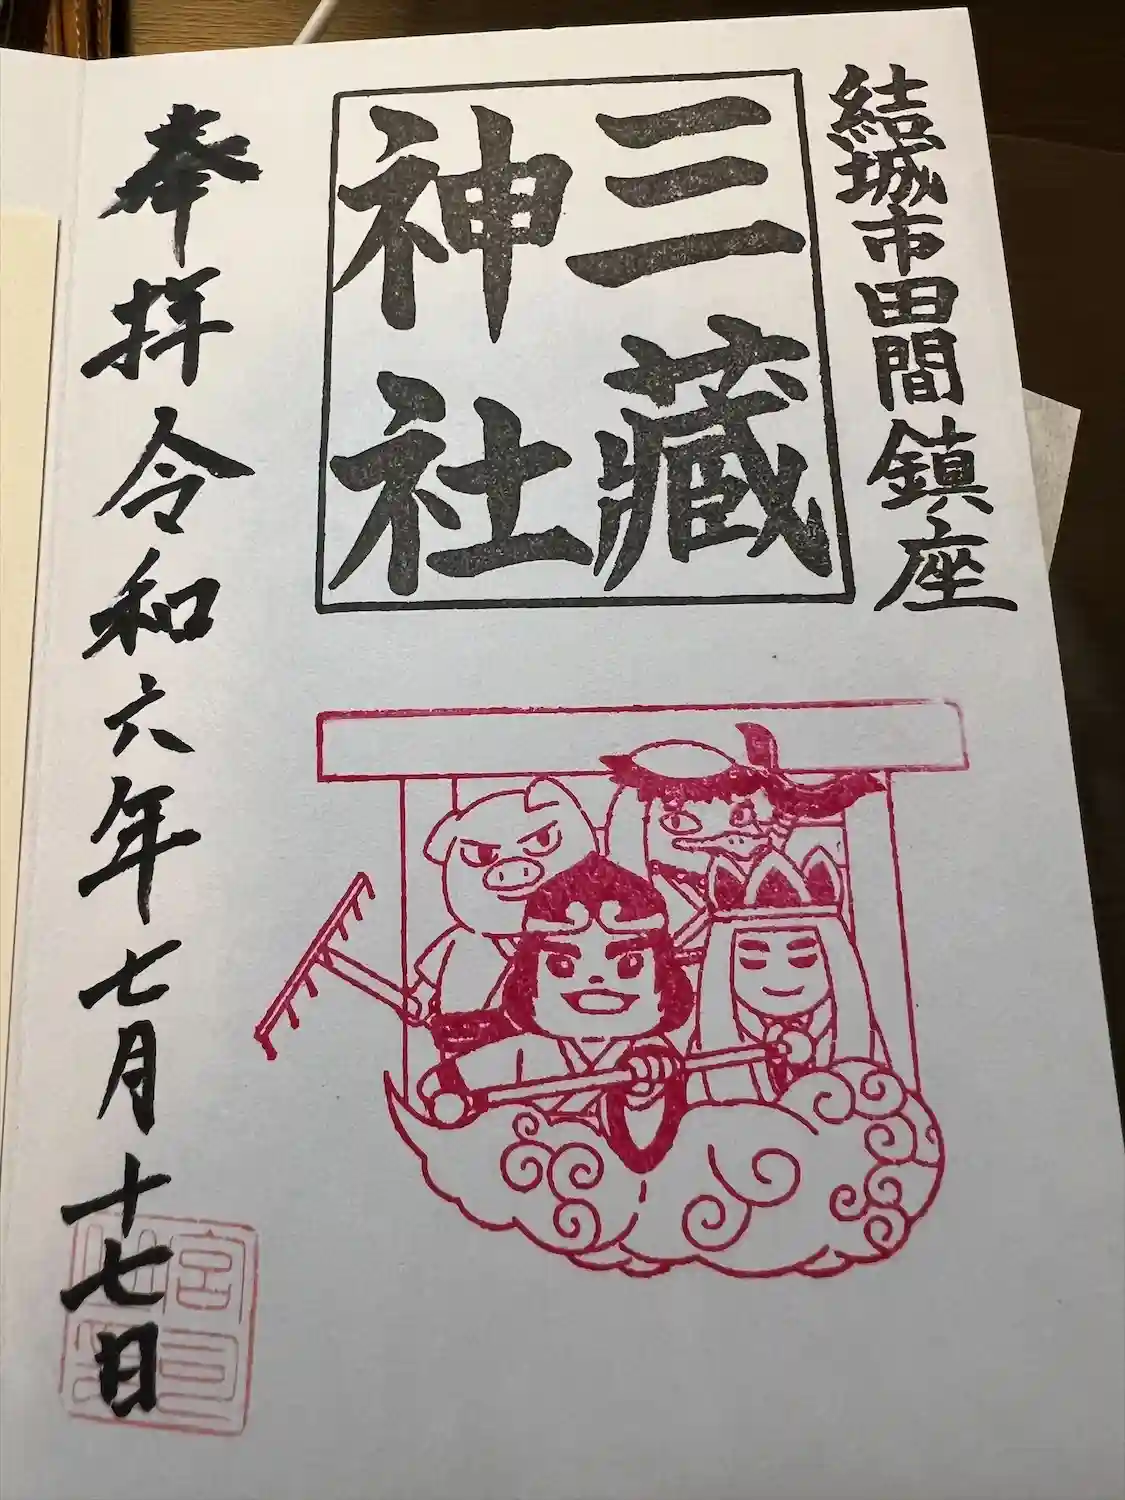 結城市田間鎮座
三藏
神社
奉拝令和六年七月十七日
宮司
之印